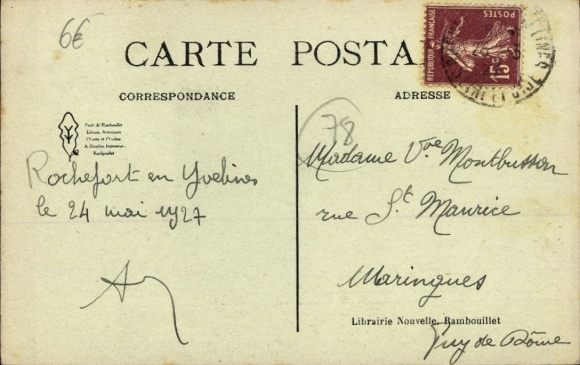 6€
CARTE POSTA
RÉPUBLIQUE FRANÇAISE
POSTES
15c
CORRESPONDANCE
ADRESSE
78
Forêt de Rambouillet
Rambouillet
Rochefort en Yvelines
le 24 mai 1927
Madame Vve Montbusson
rue St Maurice
Maringues
Librairie Nouvelle, Rambouillet
Puy de Dôme